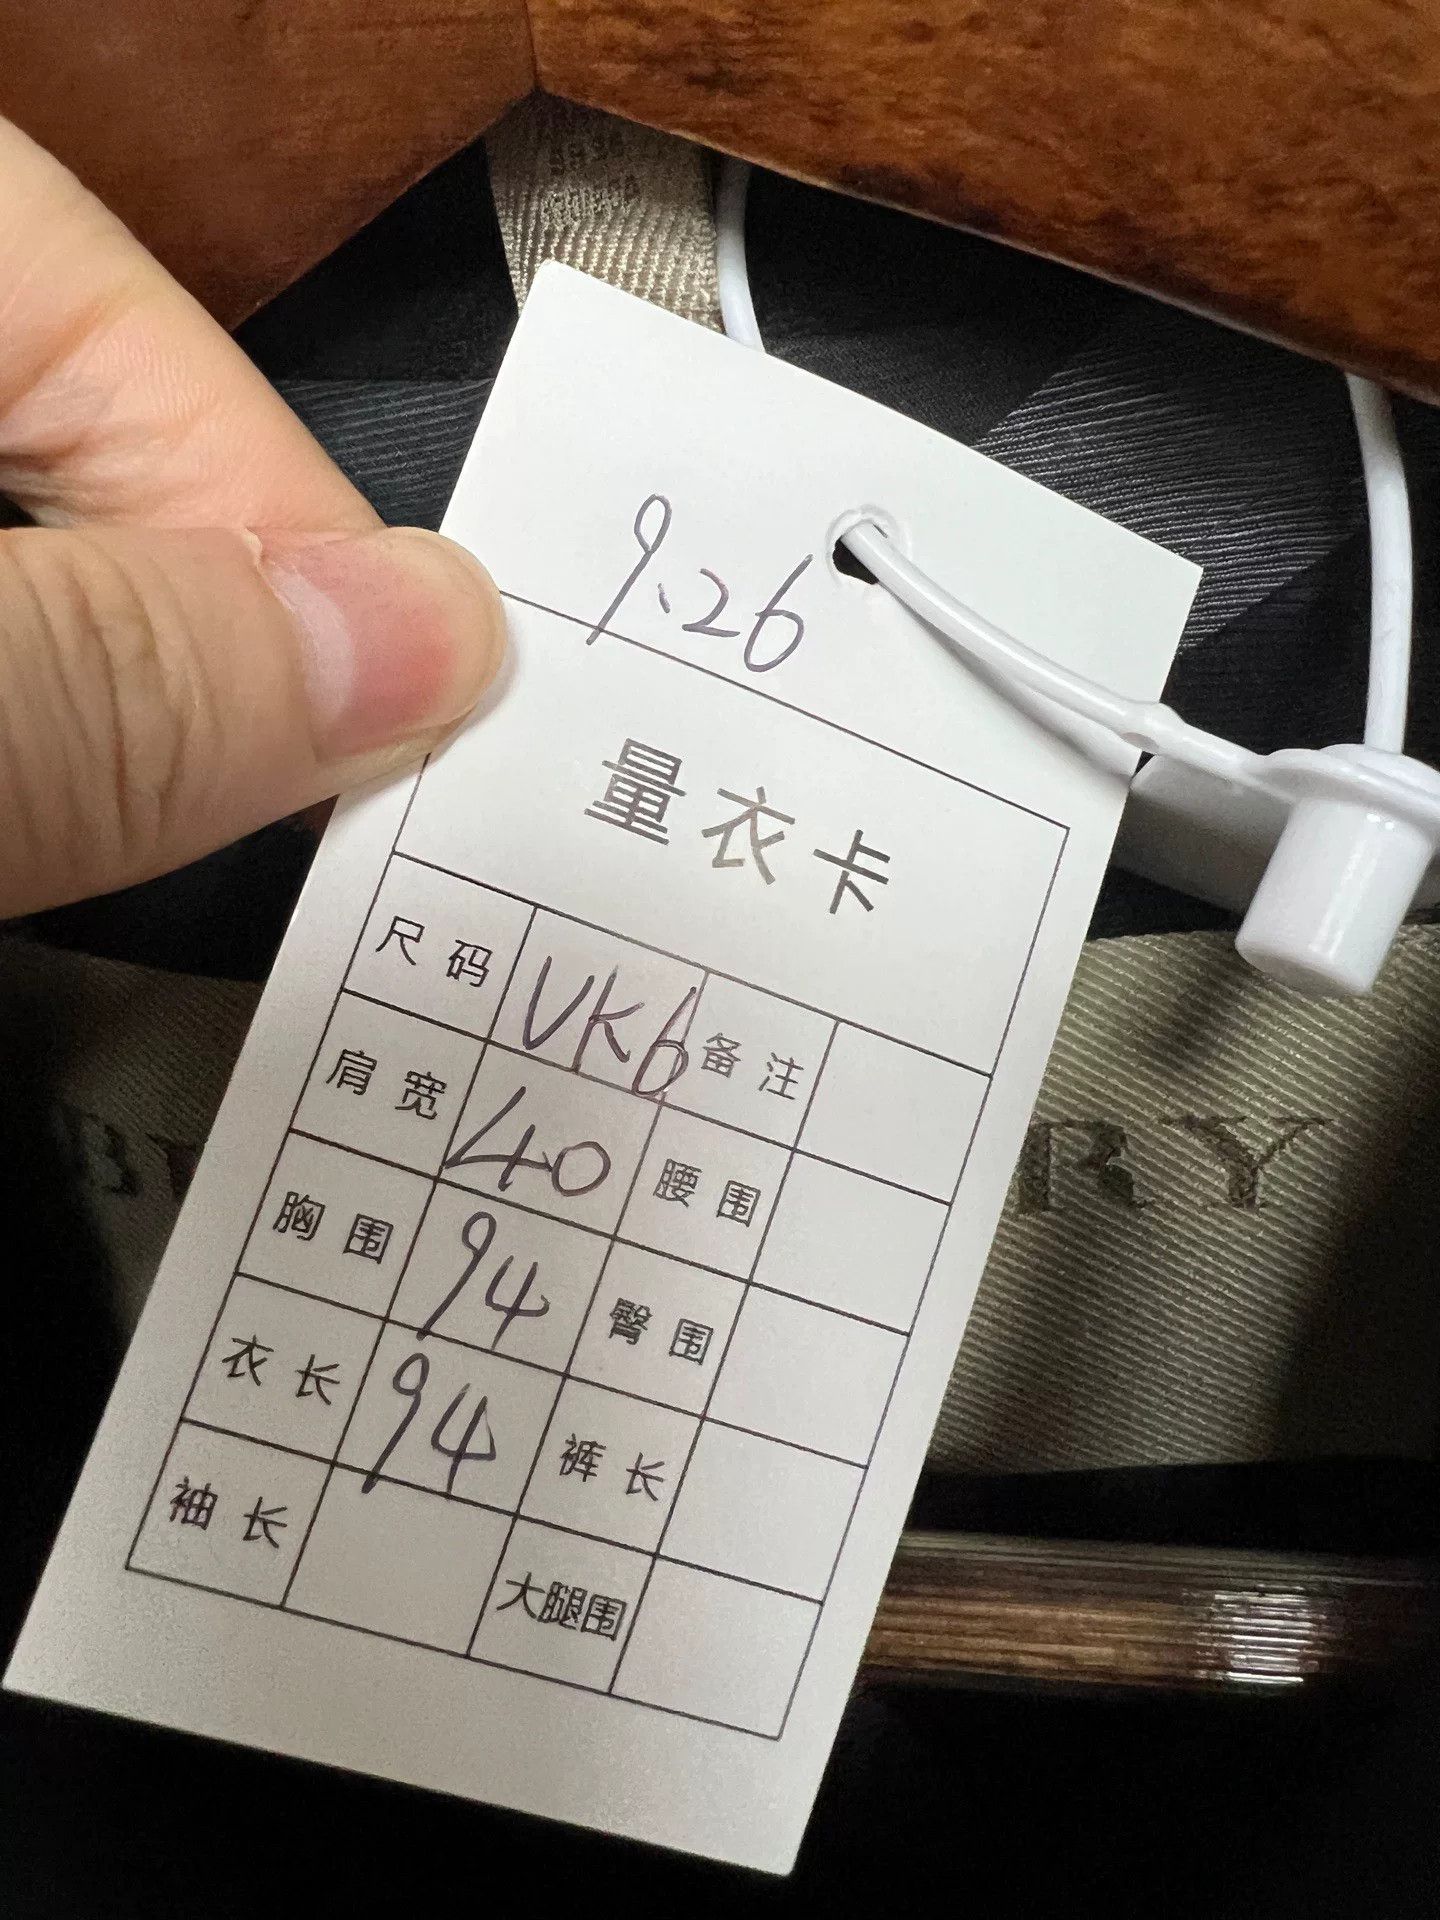 9.26
量衣卡
尺码 UK6 备注
肩宽 40 腰围
胸围 94 臀围
衣长 94 裤长
袖长 大腿围
RY